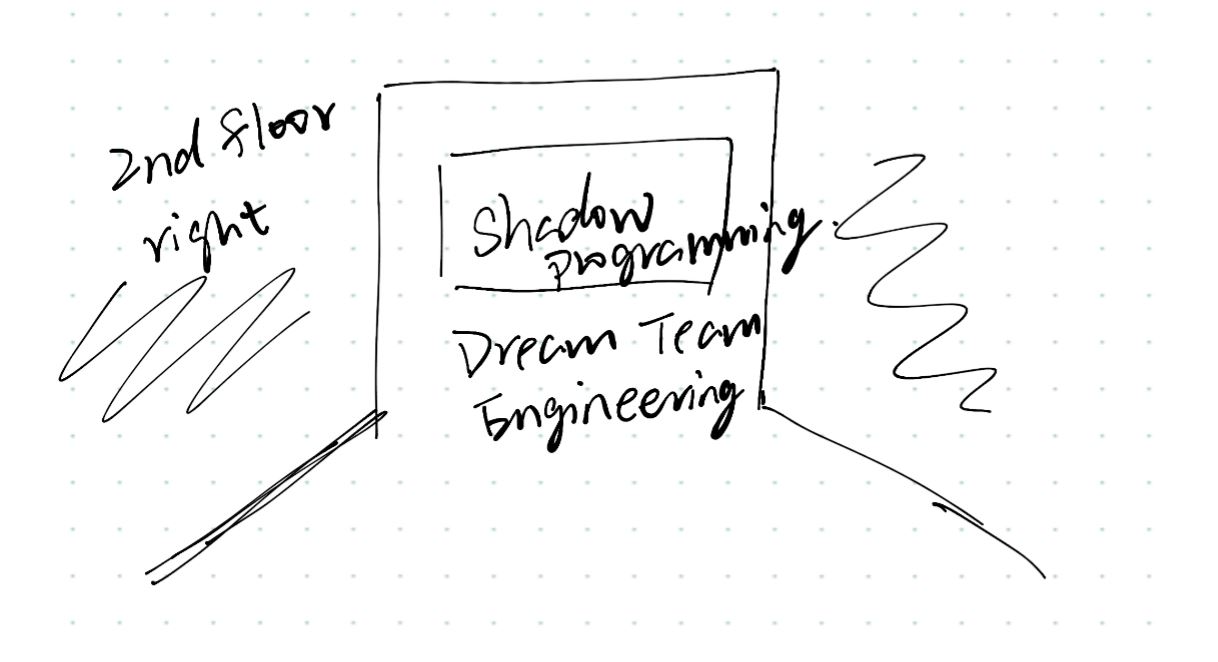 2nd floor
right
Shadow
programming.
Dream Team
Engineering